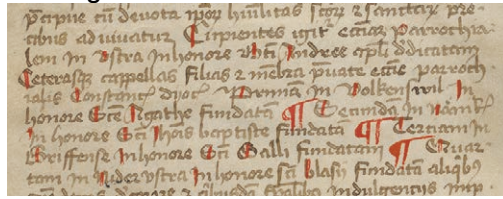 p̄cipue cū devota ip̄oꝝ hūilitas sc̄oꝝ ⁊ sanctaꝝ pre-
cibus adiuvatur Cupientes igit̄ ecc̄iaꝫ parrochia
lem in Vstra in honore bt̄i Andree apl̄i dedicatam
Ceterasqꝫ cappellas filias ⁊ membra p̄uate ecc̄ie parroch
ialis Constanc̄ dyoc̄ Primā in Volkenswil In
honore Sc̄e Agathe fundatā ¶ Secundā in Nänik̄
in honore Sc̄i Joh̄is baptiste fundatā ¶ Terciam in
Griffense in honore Sc̄i Galli fundatam ¶ Quar-
tam in Nider vstra in honore sc̄i blasii fundatā aliqͥbꝰ
indulgentiis